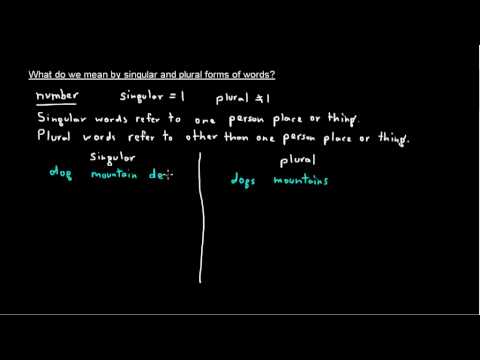 What do we mean by singular and plural forms of words?
number singular = 1 plural ≠ 1
Singular words refer to one person place or thing.
Plural words refer to other than one person place or thing.
Singular plural
dog mountain de
dogs mountains